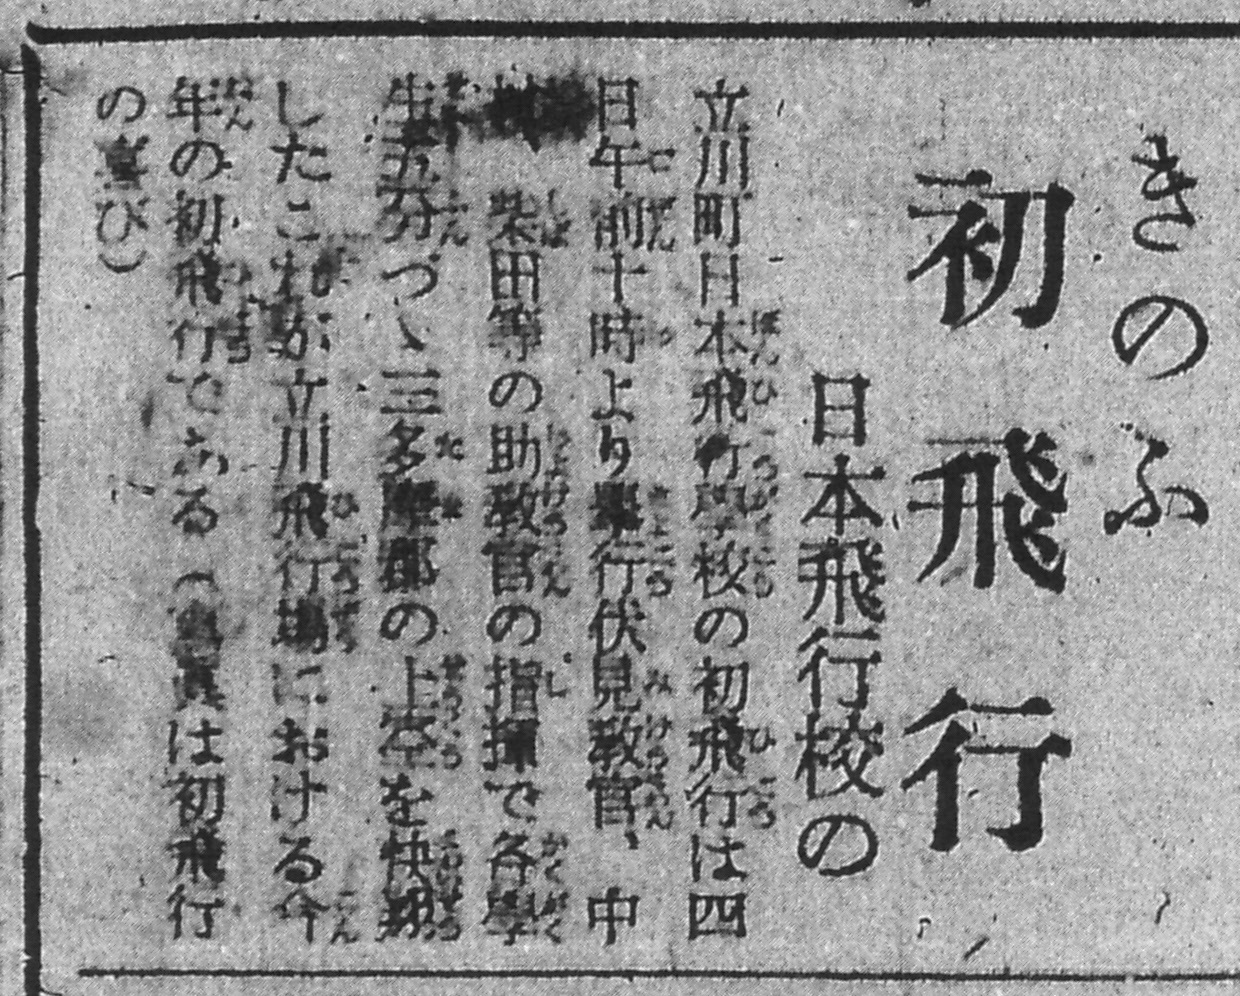 きのふ
初飛行
日本飛行校の
立川町日本飛行學校の初飛行は四
日午前十時より擧行伏見教官、中
村、柴田等の助教官の指揮で各學
生五分づゝ三多摩郡の上空を快翔
したこれが立川飛行場における今
年の初飛行である(寫眞は初飛行
の喜び)